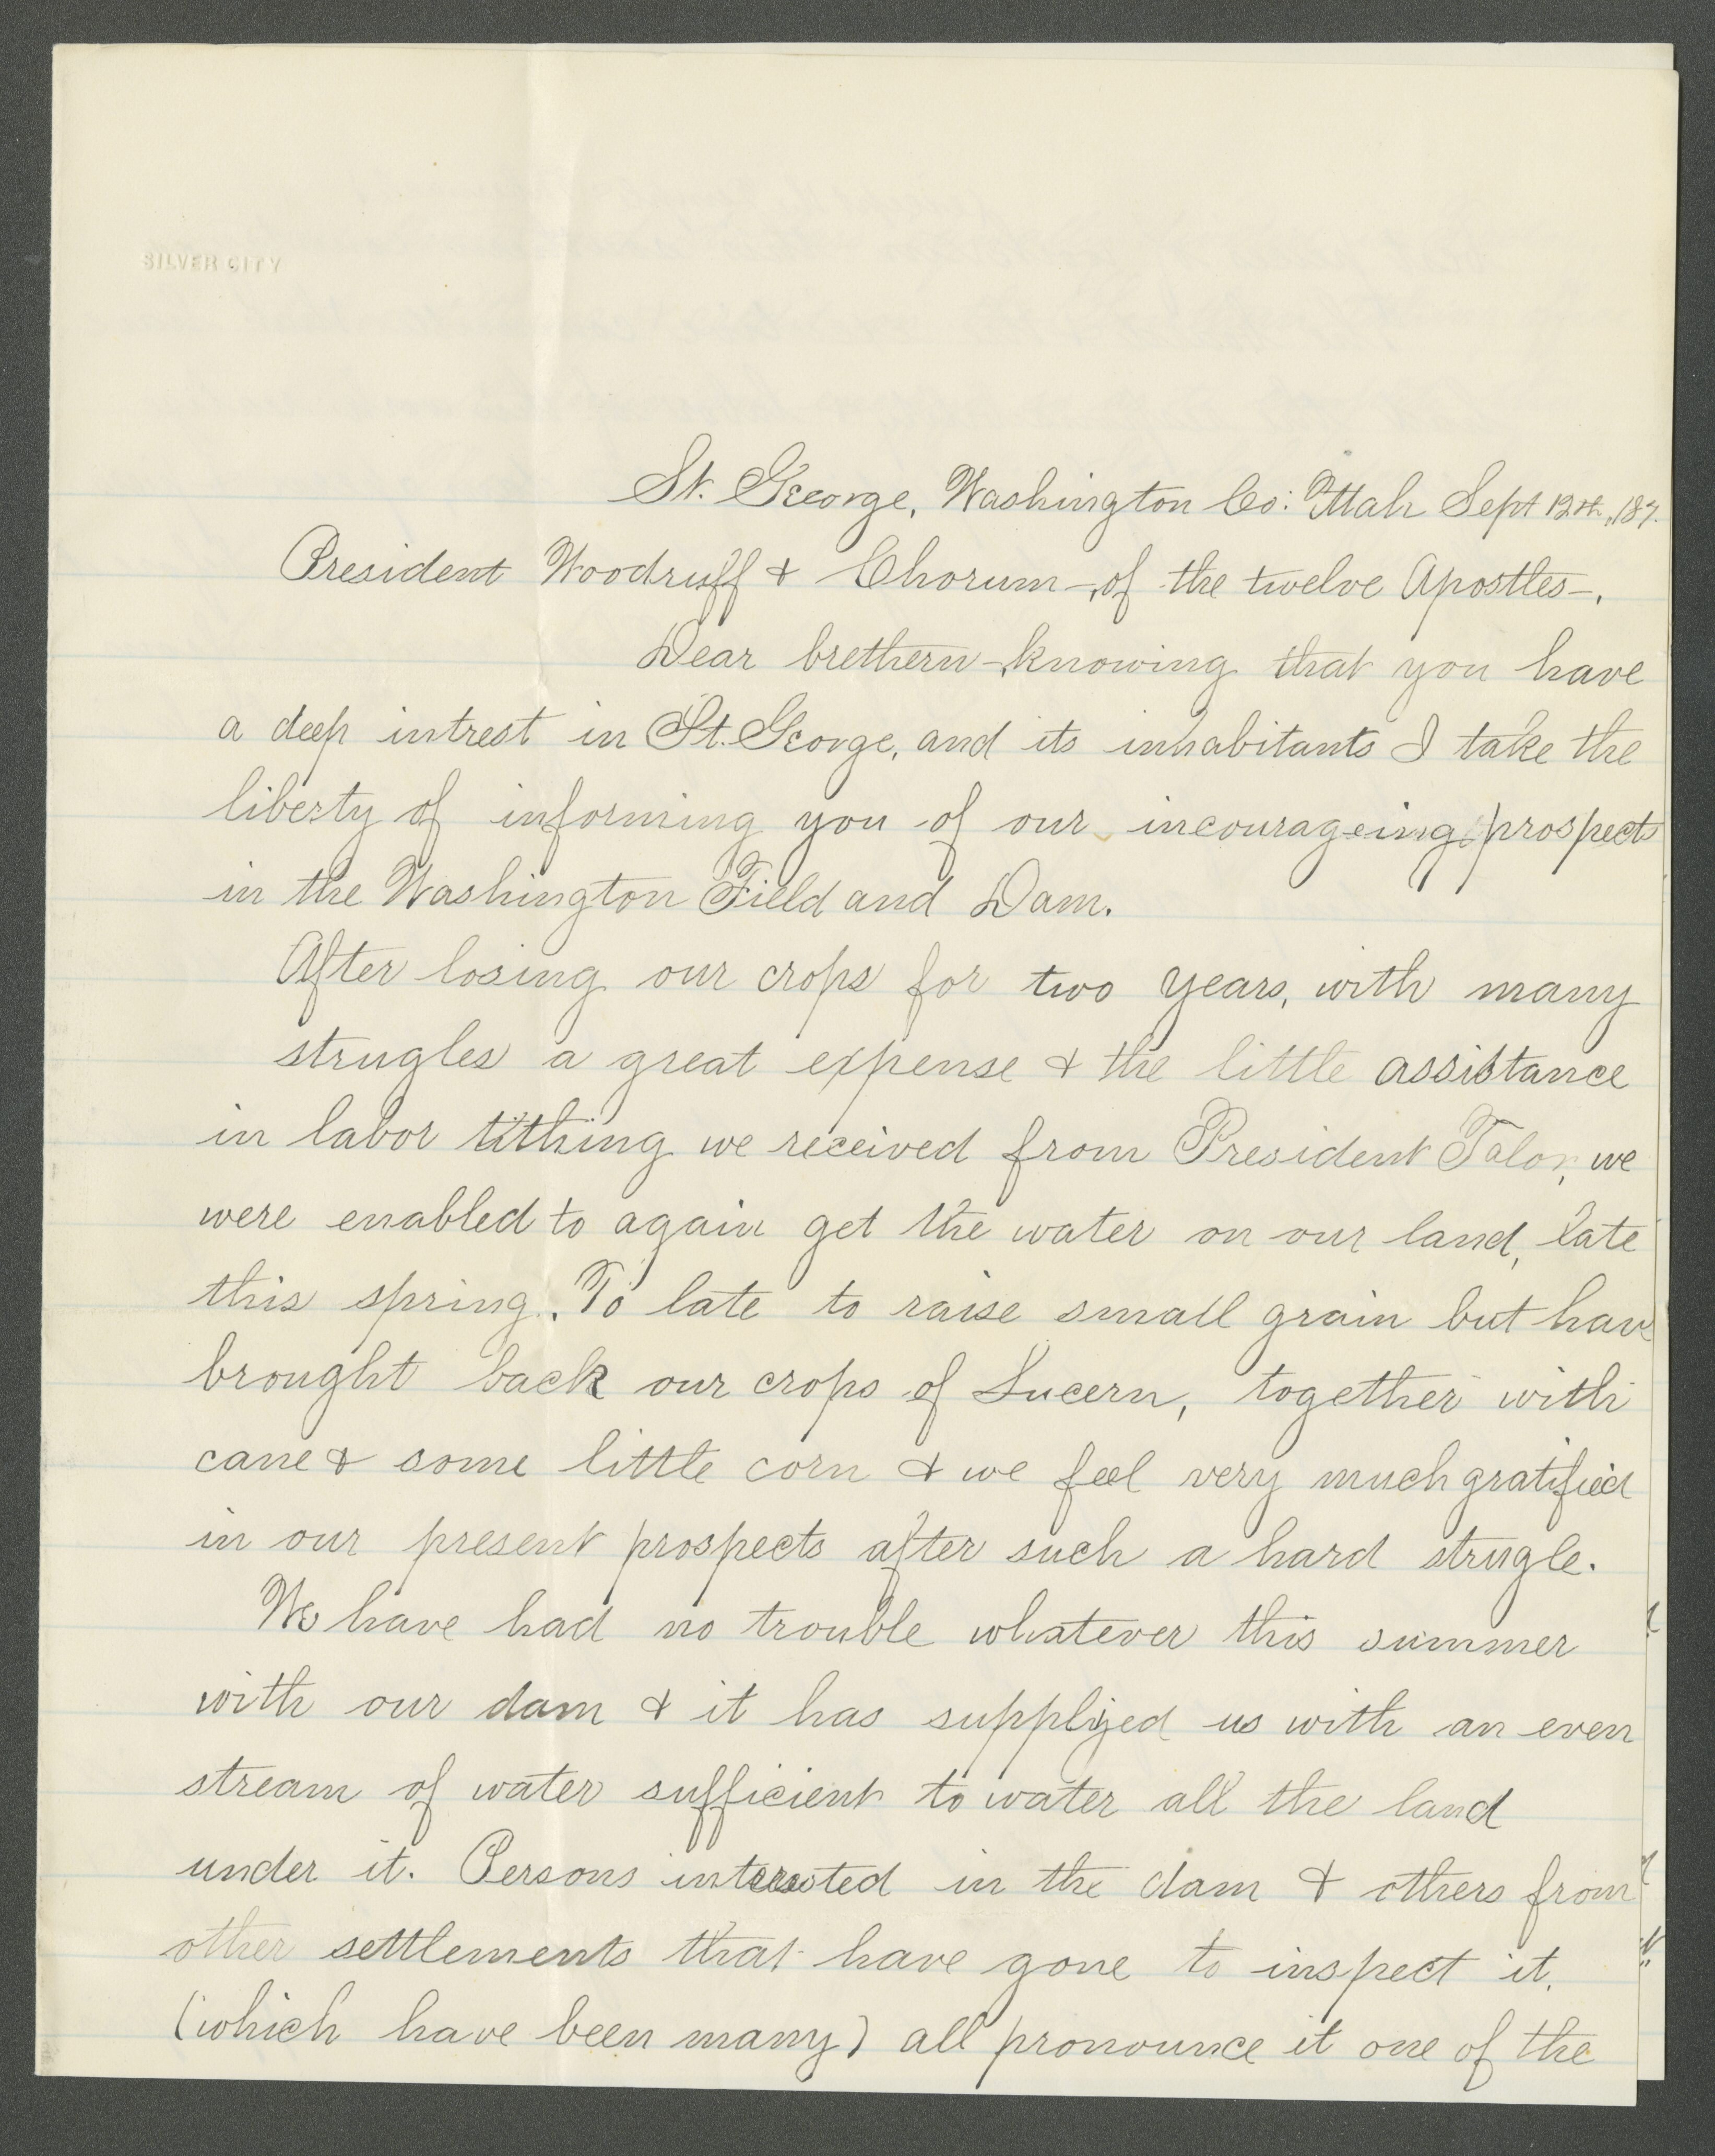 SILVER CITY
St. George, Washington Co: Utah Sept 12th, 187.
President Woodruff & Chorum-, of the twelve Apostles-.
Dear brethern-, knowing that you have
a deep intrest in St. George, and its inhabitants I take the
liberty of informing you of our incourageing prospects
in the Washington Field and Dam.
After losing our crops for two years, with many
strugles a great expense & the little assistance
in labor tithing we received from President Talor, we
were enabled to again get the water on our land, late
this spring. To late to raise small grain but have
brought back our crops of Lucern, together with
cane & some little corn & we feel very much gratified
in our present prospects after such a hard strugle.
We have had no trouble whatever this summer
with our dam & it has supplyed us with an even
stream of water sufficient to water all the land
under it. Persons interested in the dam & others from
other settlements that have gone to inspect it,
(which have been many) all pronounce it one of the